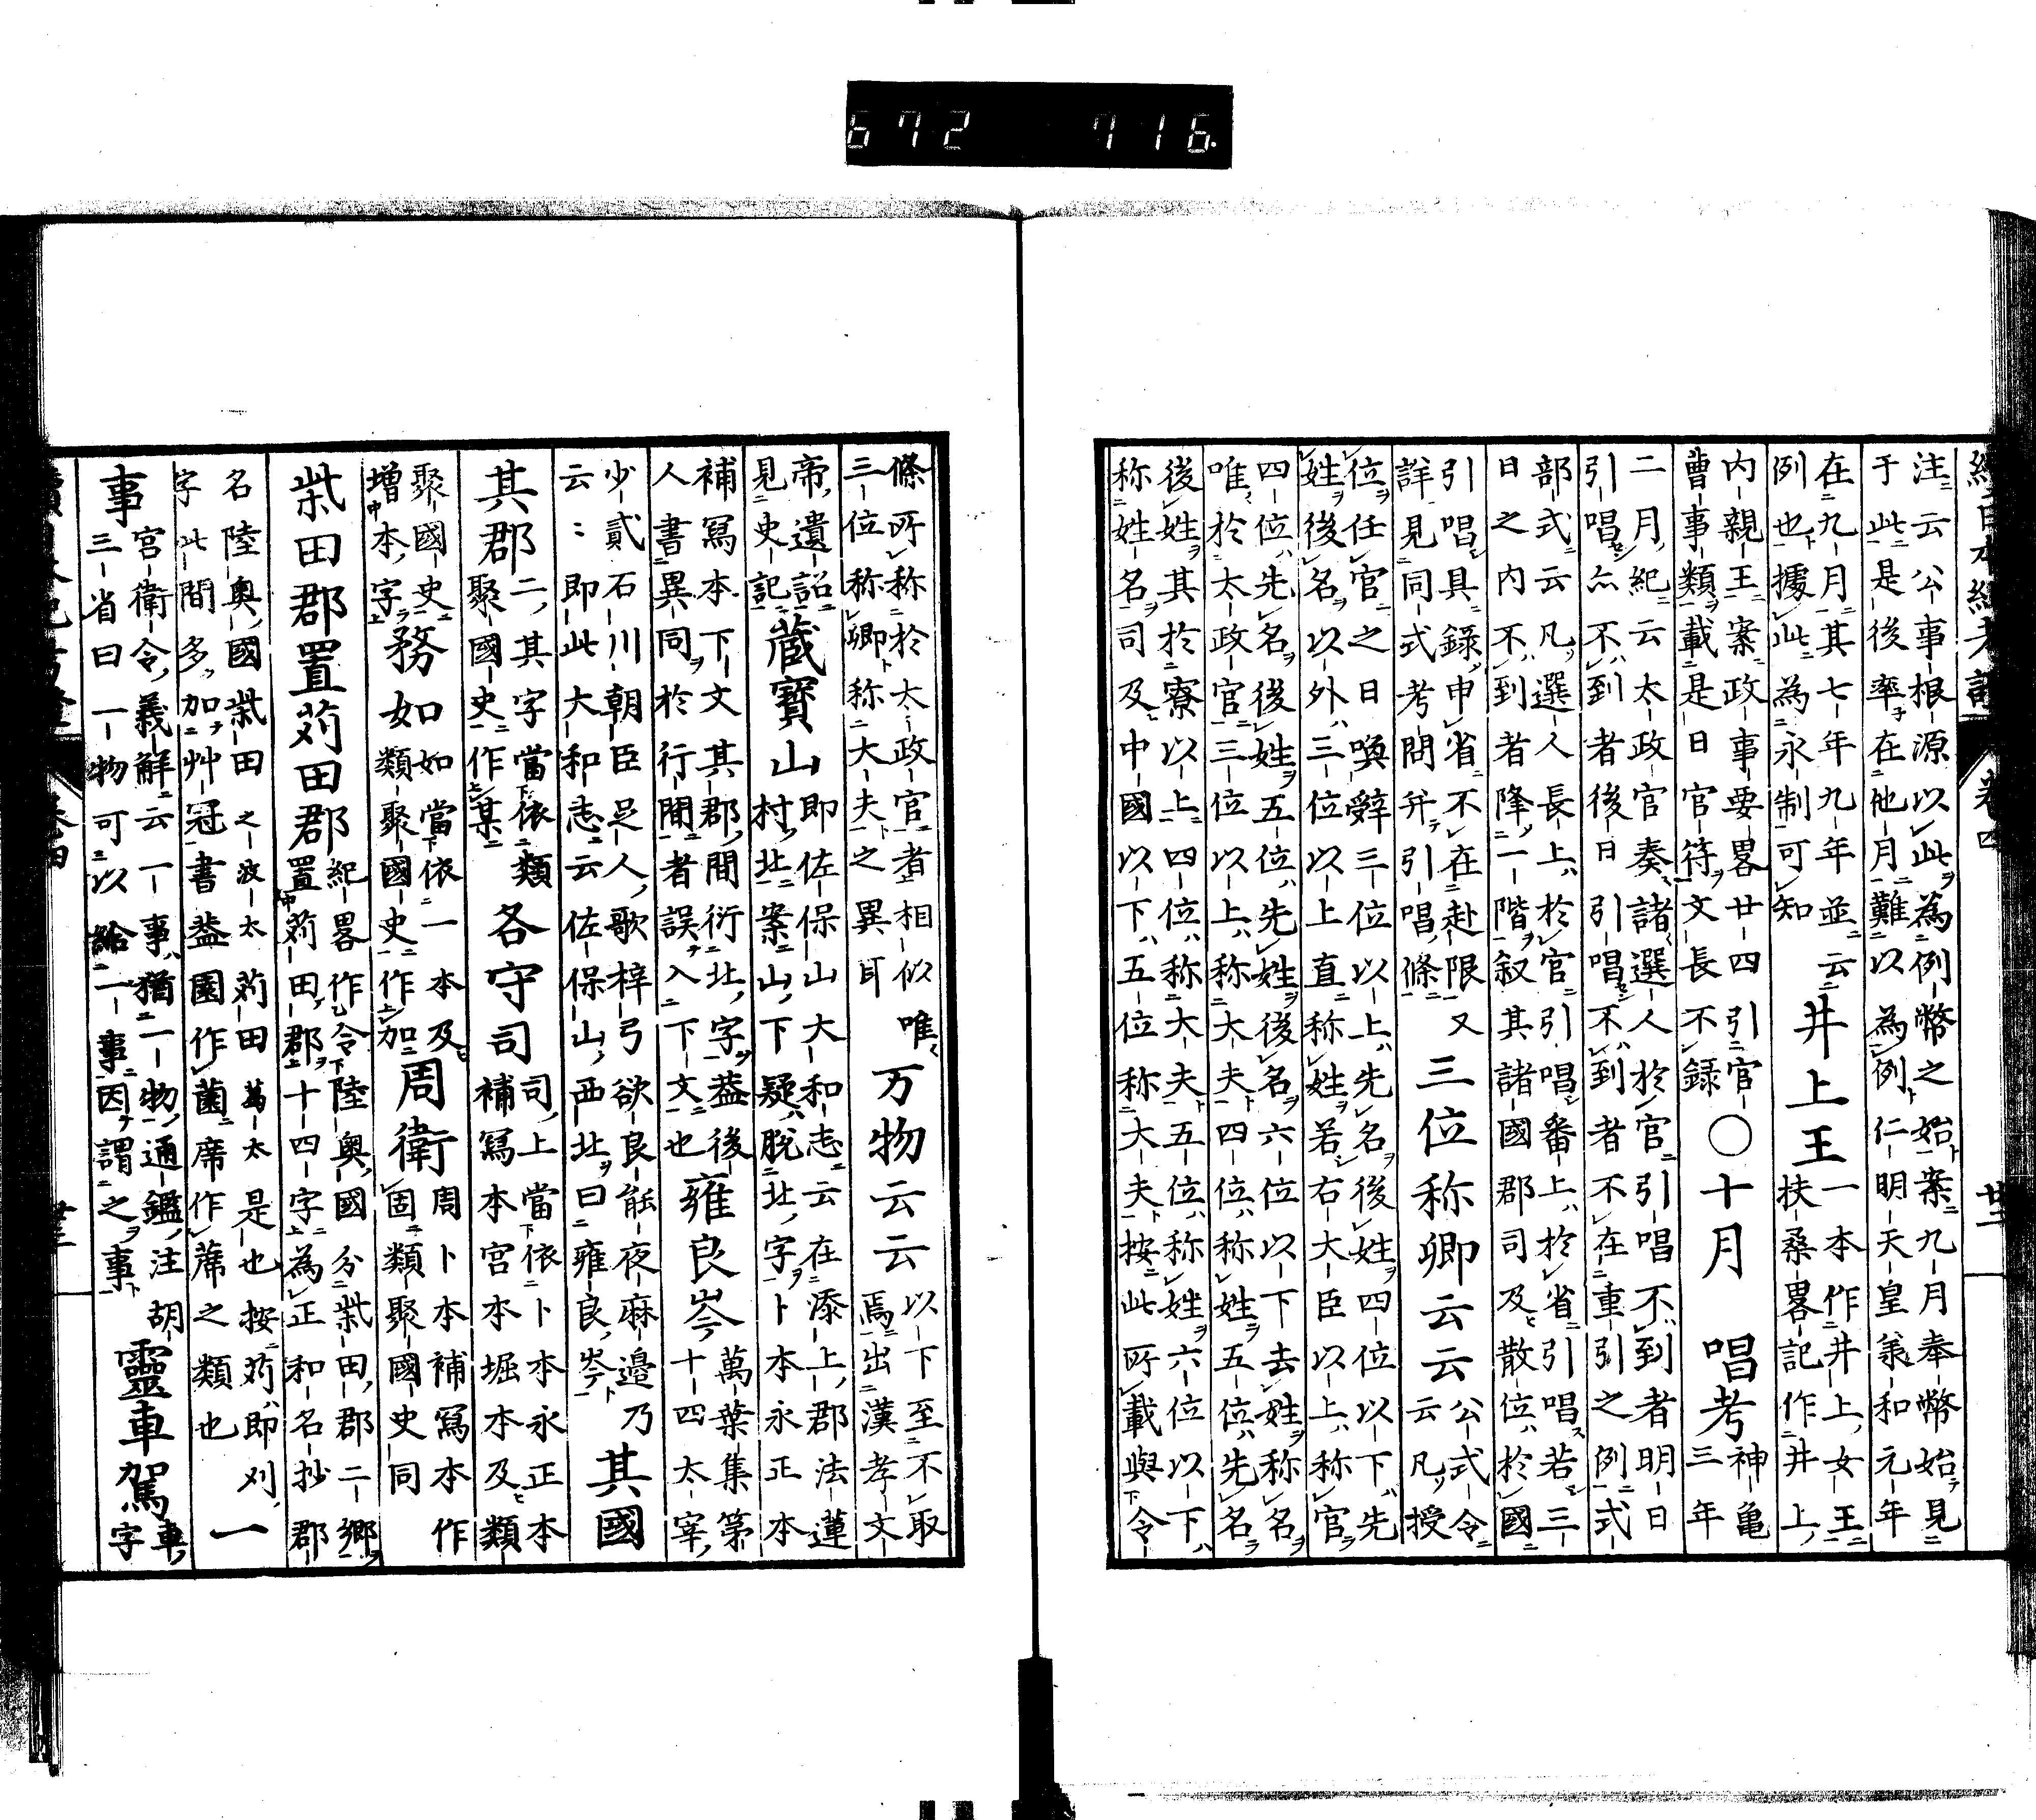 672 716
注云公事根源以此為例幣之始案九月奉幣始見
于此是後率在他月難以為例仁明天皇義和元年
在九月其七年九年並云 井上王 一本作井上女王
例也據此為永制可知 扶桑畧記作井上
内親王案政事要畧廿四引官 〇十月 唱考 神亀
曹事類載是日官符文長不録 三年
二月紀云太政官奏諸選人於官引唱不到者明日
引唱亦不到者後日引唱不到者不在重引之例式
部式云凡選人長上於官引唱番上於省引唱若三
日之内不到者降一階叙其諸國郡司及散位於國
引唱具錄申省不在赴限又 三位称卿云云 公式令
詳見同式考問并引唱條 云凡授
位任官之日喚辞三位以上先名後姓四位以下先
姓後名以外三位以上直称姓若右大臣以上称官
四位先名後姓五位先姓後名六位以下去姓称名
唯於太政官三位以上称大夫四位称姓五位先名
後姓其於寮以上四位称大夫五位称姓六位以下
称姓名司及中國以下五位称大夫按此所載與令
條所称於太政官者相似唯 万物云云 以下至不取
三位称卿称大夫之異耳 焉出漢孝文
帝遺詔 蔵寳山 即佐保山大和志云在添上郡法蓮
見史記 村北案山下疑脱北字卜本永正本
補寫本下文其郡間衍北字葢後 雍良岑 萬葉集第
人書異同於行間者誤入下文也 十四太宰
少貳石川朝臣足人歌梓弓欲良能夜麻邉乃 其國
云云即此大和志云佐保山西北曰雍良岑
其郡 二其字當依類 各守司 司上當依卜本永正本
聚國史作某 補寫本宮本堀本及類
聚國史 務如 如當依一本及 周衛 周卜本補寫本作
增本字 類聚國史作加 固類聚國史同
柴田郡置苅田郡 紀畧作令陸奥國分柴田郡二郷
置苅田郡十四字為正和名抄郡
名陸奥國柴田之波太苅田葛太是也按苅即刈 一
字此間多加艸冠書葢園作薗席作蓆之類也
事 宮衛令義解云一事猶一物通鑑注胡 靈車駕 車
三省曰一物可以給一事因謂之事 字